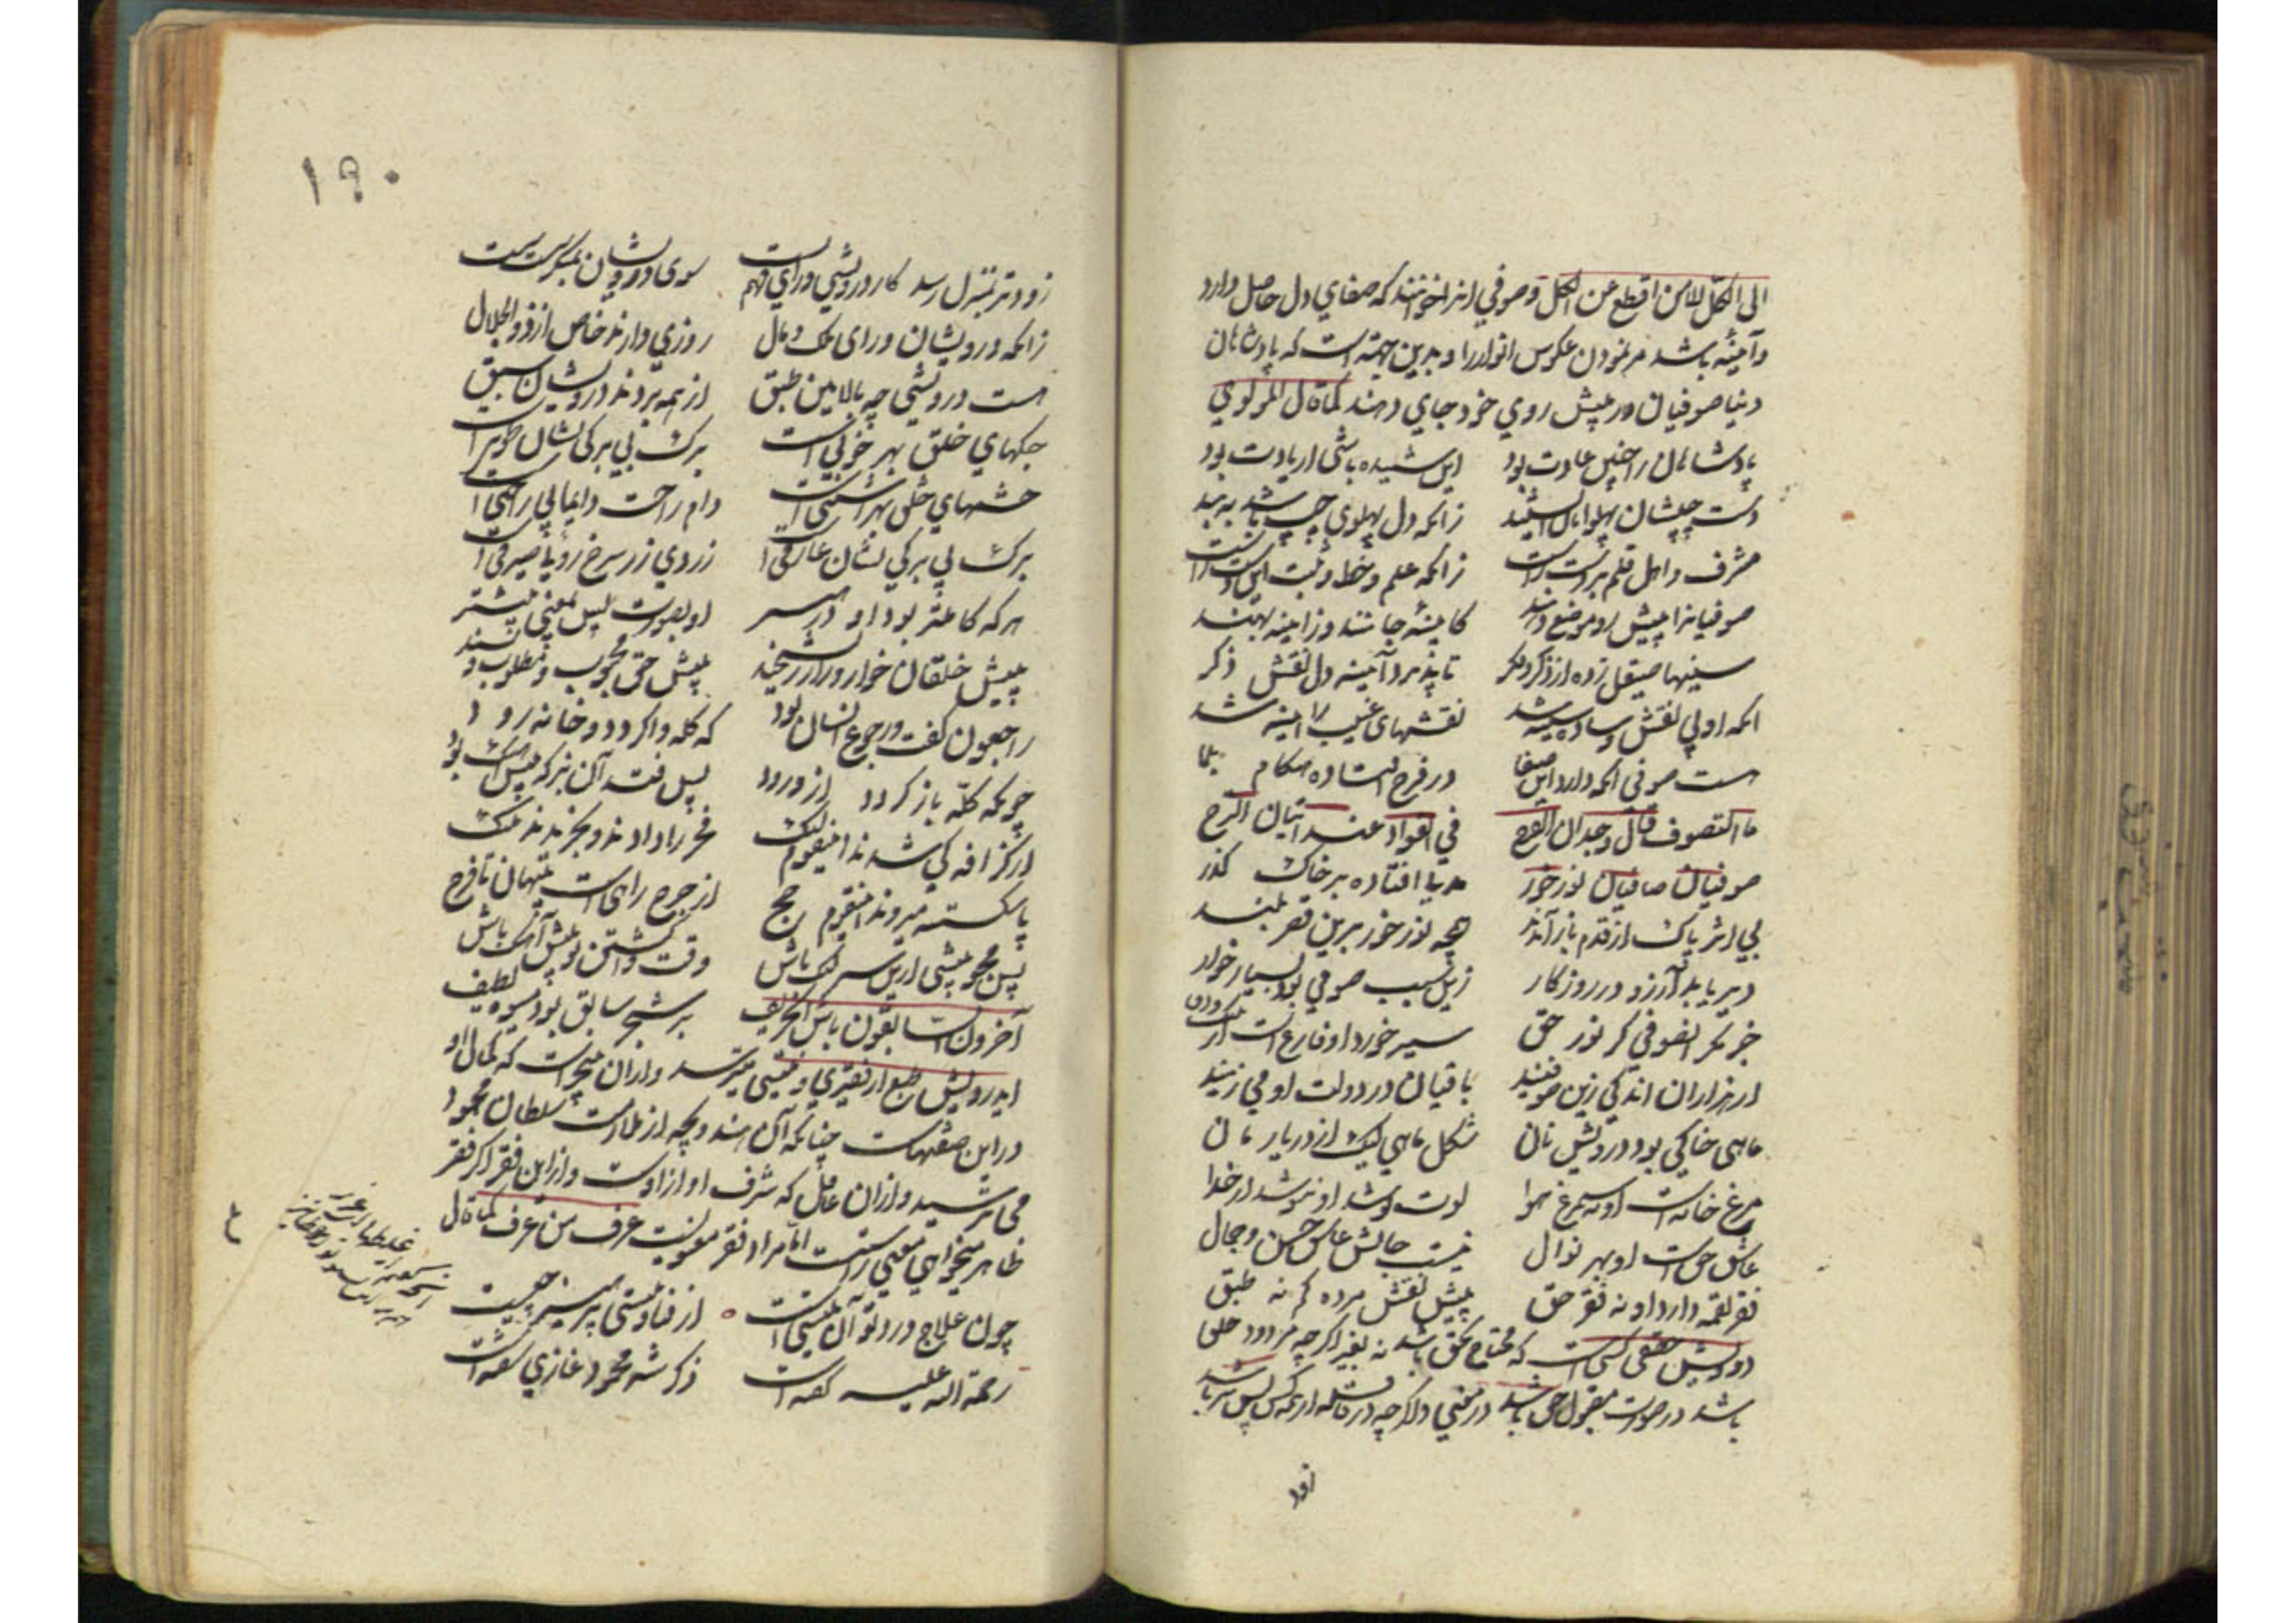 الی الکل للامن اقطع عن الکل و صوفی را نیز خوانند که صفای دل حاصل دارد
و آمینه باشد مر نمودن عکوس انوار را و بدین جهته است که پادشاهان
دنیا صوفیان در پیش روی خود جای دهند کما قال المولوی
پادشاهان را چنین عادت بود این شنیده باشی ار یادت بود
دست چپشان پهلوانان ایستند زانکه دل پهلوی چپ باشد به بند
مشرف و اهل قلم بر دست راست زانکه علم و خط و ثبت این دست راست
صوفیانرا پیش رو موضع دهند کاینه جانند و زاینه بهند
سینها صیقل زده از ذکر و فکر تا پذیرد آمینه دل نقش ذکر
انکه او بی نقش و ساده سینه شد نقشهای غیب را اینه شد
هست صوفی انکه دارد این صفا در فرح افتاده هنگام
ما التصوف قال وجدان الفرح فی الفواد عند اتیان الترح
صوفیان صافیان نور خور مدیا افتاده بر خاک گذر
بی اثر پاک از قدم باز آمدند همچو نور خور برین قعر بلند
دیر یابد آرزو در روزگار زین سبب صوفی بود بسیار خوار
جز مکر انصوفی کز نور حق سیر خورد او فارغ است از
از هزاران اندکی زین صوفیند باقیان در دولت او می زیند
ماهی خاکی بود درویش نان شکل ماهی لیک از دریا رمان
مرغ خانه است او نه سیمرغ هوا لوت نوشد او ننوشد از خدا
عاشق حق است او بهر نوال نیست جانش عاشق حسن و جمال
فقر لقمه دارد او نه فقر حق پیش نقش مرده کم نه طبق
درویش حقیقی کسی است که محتاج بحق باشد نه بغیر اگرچه مردود خلق
باشد در صورت مقبول حق باشد در معنی و اگرچه در قافله از همه کس پس تر باشد
زود
١٩٠
زودتر بمنزل رسد کار درویشی ورای فهم تست سوی درویشان بمنگر سست سست
زانکه درویشان ورای ملک و مال روزی دارند خاص از ذوالجلال
هست درویشی چه بالا مین طبق از همه بردند درویشان سبق
جنگهای خلق بهر خوبی است برگ بی برگی نشان طوبی است
خشمهای خلق بهر آشتی است دام راحت دایما بی راحتی است
برگ بی برگی نشان عارفی است زردی زر سرخ رویی صیرفی است
هر که کاملتر بود او در هنر او بصورت پس بمعنی پیشتر
پیش خلقان خوار و زار و ریشخند پیش حق محبوب و مطلوب و پسند
راجعون گفت و رجوع انسان بود که گله وا گردد و خانه رود
چونکه گله باز گردد از ورود پس فتد آن بز که پیش آهنگ بود
از گزافه کی شدند اینقوم لنگ فخر را دادند و بخریدند ننگ
پا شکسته میروند اینقوم حج از حرج راهی است پنهان تا فرج
پس مجو پیشی ازین سر لنگ باش وقت وا گشتن تو پیش آهنگ باش
آخرون السابقون باش ای حریف بر شجر سابق بود میوه لطیف
ایدرویش طبع از فقیری و نیستی میترسد و از ان هیچ است که کمال او
در این صفتهاست چنانکه آن هندو بچه از ملازمت سلطان محمود
می ترسید و از ان غافل که شرف او از اوست و از این فقر اگر فقر
ظاهر میخواهی معنی راست اما مراد فقر معنویست عرف من عرف کما قال
چون علاج درد تو آن نیستی است از فنا و نیستی پرهیز چیست
رحمة الله علیه گفته است ذکر شه محمود غازی سفته است